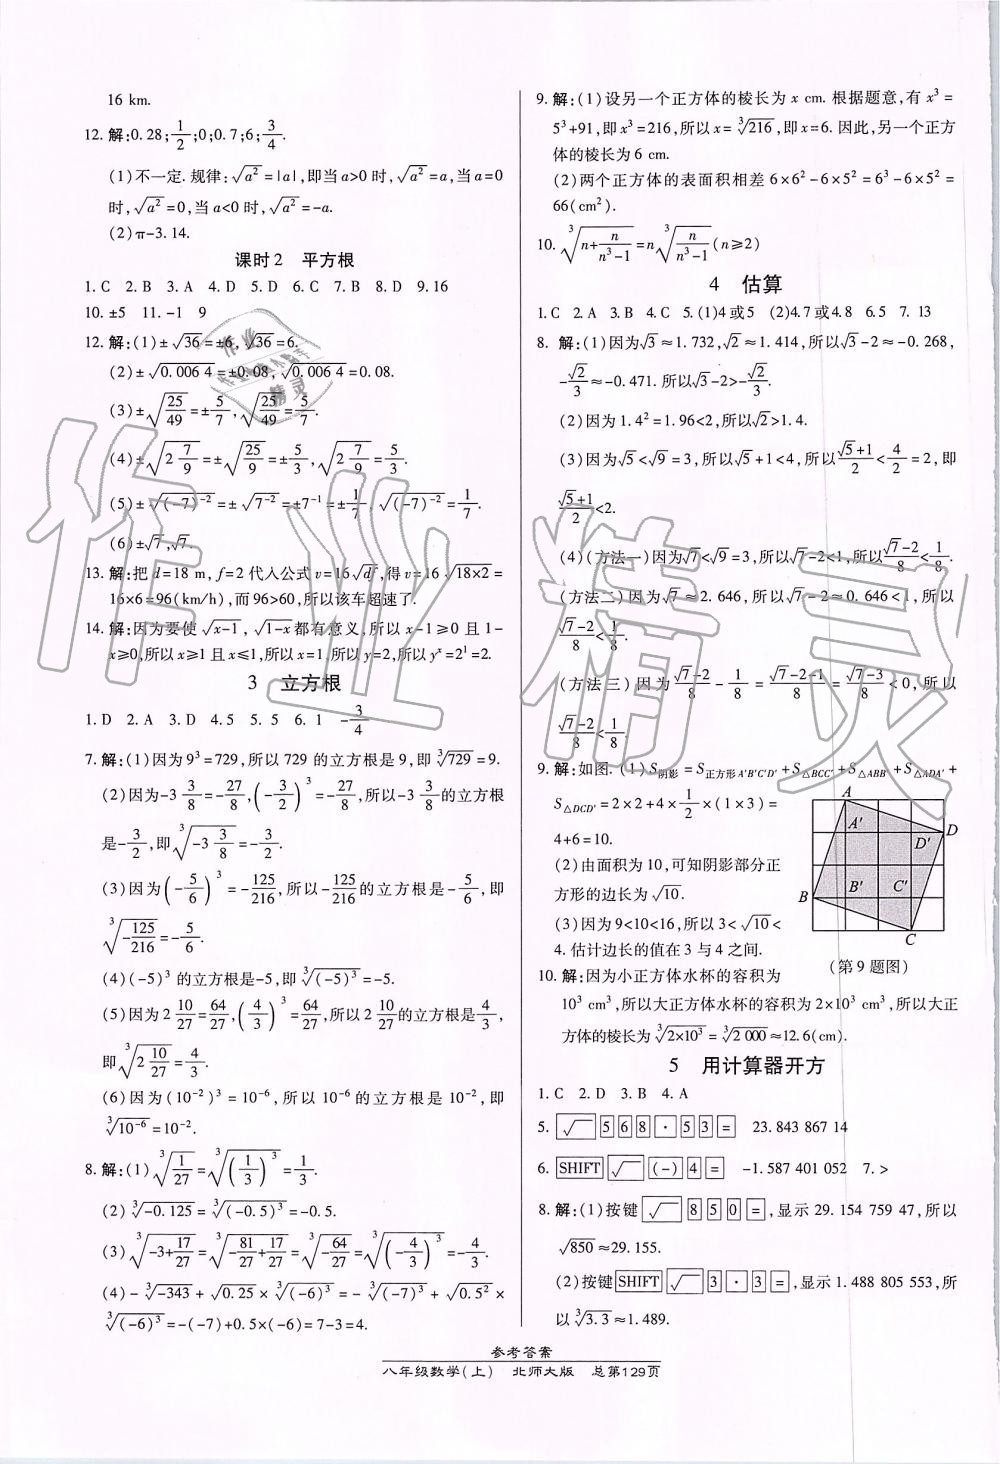 16 km.
12. 解:0.28;1/2;0;0.7;6;3/4.
(1)不一定.规律:√a²=|a|,即当a>0时,√a²=a,当a=0
时,√a²=0,当a<0时,√a²=-a.
(2)π-3.14.
课时2 平方根
1.C 2.B 3.A 4.D 5.D 6.C 7.B 8.D 9.16
10. ±5 11. -1 9
12. 解:(1)±√36=±6,√36=6.
(2)±√0.006 4=±0.08,√0.006 4=0.08.
(3)±√(25/49)=±5/7,√(25/49)=5/7.
(4)±√(2 7/9)=±√(25/9)=±5/3,√(2 7/9)=5/3.
(5)±√(-7)⁻²=±√7⁻²=±7⁻¹=±1/7,√(-7)⁻²=1/7.
(6)±√7,√7.
13. 解:把d=18 m,f=2代入公式v=16√df,得v=16√18×2=
16×6=96(km/h),而96>60,所以该车超速了.
14. 解:因为要使√x-1,√1-x都有意义,所以x-1≥0且1-
x≥0,所以x≥1且x≤1,所以x=1,所以y=2,所以yˣ=2¹=2.
3 立方根
1.D 2.A 3.D 4.5 5.5 6.1 -3/4
7. 解:(1)因为9³=729,所以729的立方根是9,即∛729=9.
(2)因为-3 3/8=-27/8,(-3/2)³=-27/8,所以-3 3/8的立方根
是-3/2,即∛(-3 3/8)=-3/2.
(3)因为(-5/6)³=-125/216,所以-125/216的立方根是-5/6,即
∛(-125/216)=-5/6.
(4)(-5)³的立方根是-5,即∛(-5)³=-5.
(5)因为2 10/27=64/27,(4/3)³=64/27,所以2 10/27的立方根是4/3,
即∛(2 10/27)=4/3.
(6)因为(10⁻²)³=10⁻⁶,所以10⁻⁶的立方根是10⁻²,即
∛10⁻⁶=10⁻².
8. 解:(1)∛(1/27)=∛(1/3)³=1/3.
(2)∛-0.125=∛(-0.5)³=-0.5.
(3)∛(-3+17/27)=∛(-81/27+17/27)=∛(-64/27)=∛(-4/3)³=-4/3.
(4)-∛-343+√0.25×∛(-6)³=-∛(-7)³+√0.5²×
∛(-6)³=-(-7)+0.5×(-6)=7-3=4.
9. 解:(1)设另一个正方体的棱长为x cm.根据题意,有x³=
5³+91,即x³=216,所以x=∛216,即x=6.因此,另一个正方
体的棱长为6 cm.
(2)两个正方体的表面积相差6×6²-6×5²=6³-6×5²=
66(cm²).
10. ∛(n+n/(n³-1))=n∛(n/(n³-1))(n≥2)
4 估算
1.C 2.A 3.B 4.C 5.(1)4或5 (2)4.7或4.8 6.5 7.13
8. 解:(1)因为√3≈1.732,√2≈1.414,所以√3-2≈-0.268,
-√2/3≈-0.471.所以√3-2>-√2/3.
(2)因为1.4²=1.96<2,所以√2>1.4.
(3)因为√5<√9=3,所以√5+1<4,所以(√5+1)/2<4/2=2,即
(√5+1)/2<2.
(4)(方法一)因为√7<√9=3,所以√7-2<1,所以(√7-2)/8<1/8.
(方法二)因为√7≈2.646,所以√7-2≈0.646<1,所以
(√7-2)/8<1/8.
(方法三)因为(√7-2)/8-1/8=(√7-2-1)/8=(√7-3)/8<0,所以
(√7-2)/8<1/8.
9. 解:如图.(1)S阴影=S正方形A'B'C'D'+S△BCC'+S△ABB'+S△ADA'+
S△DCD'=2×2+4×1/2×(1×3)=
4+6=10.
(2)由面积为10,可知阴影部分正
方形的边长为√10.
(3)因为9<10<16,所以3<√10<
4.估计边长的值在3与4之间.
A
A'
D
D'
B
B'
C'
C
(第9题图)
10. 解:因为小正方体水杯的容积为
10³ cm³,所以大正方体水杯的容积为2×10³ cm³,所以大正
方体的棱长为∛2×10³=∛2 000≈12.6(cm).
5 用计算器开方
1.C 2.D 3.B 4.A
5. √ 5 6 8 · 5 3 = 23.843 867 14
6. SHIFT √ (-) 4 = -1.587 401 052 7. >
8. 解:(1)按键 √ 8 5 0 =,显示29.154 759 47,所以
√850≈29.155.
(2)按键 SHIFT √ 3 · 3 =,显示1.488 805 553,所
以∛3.3≈1.489.
参考答案
八年级数学(上) 北师大版 总第129页
作业精灵